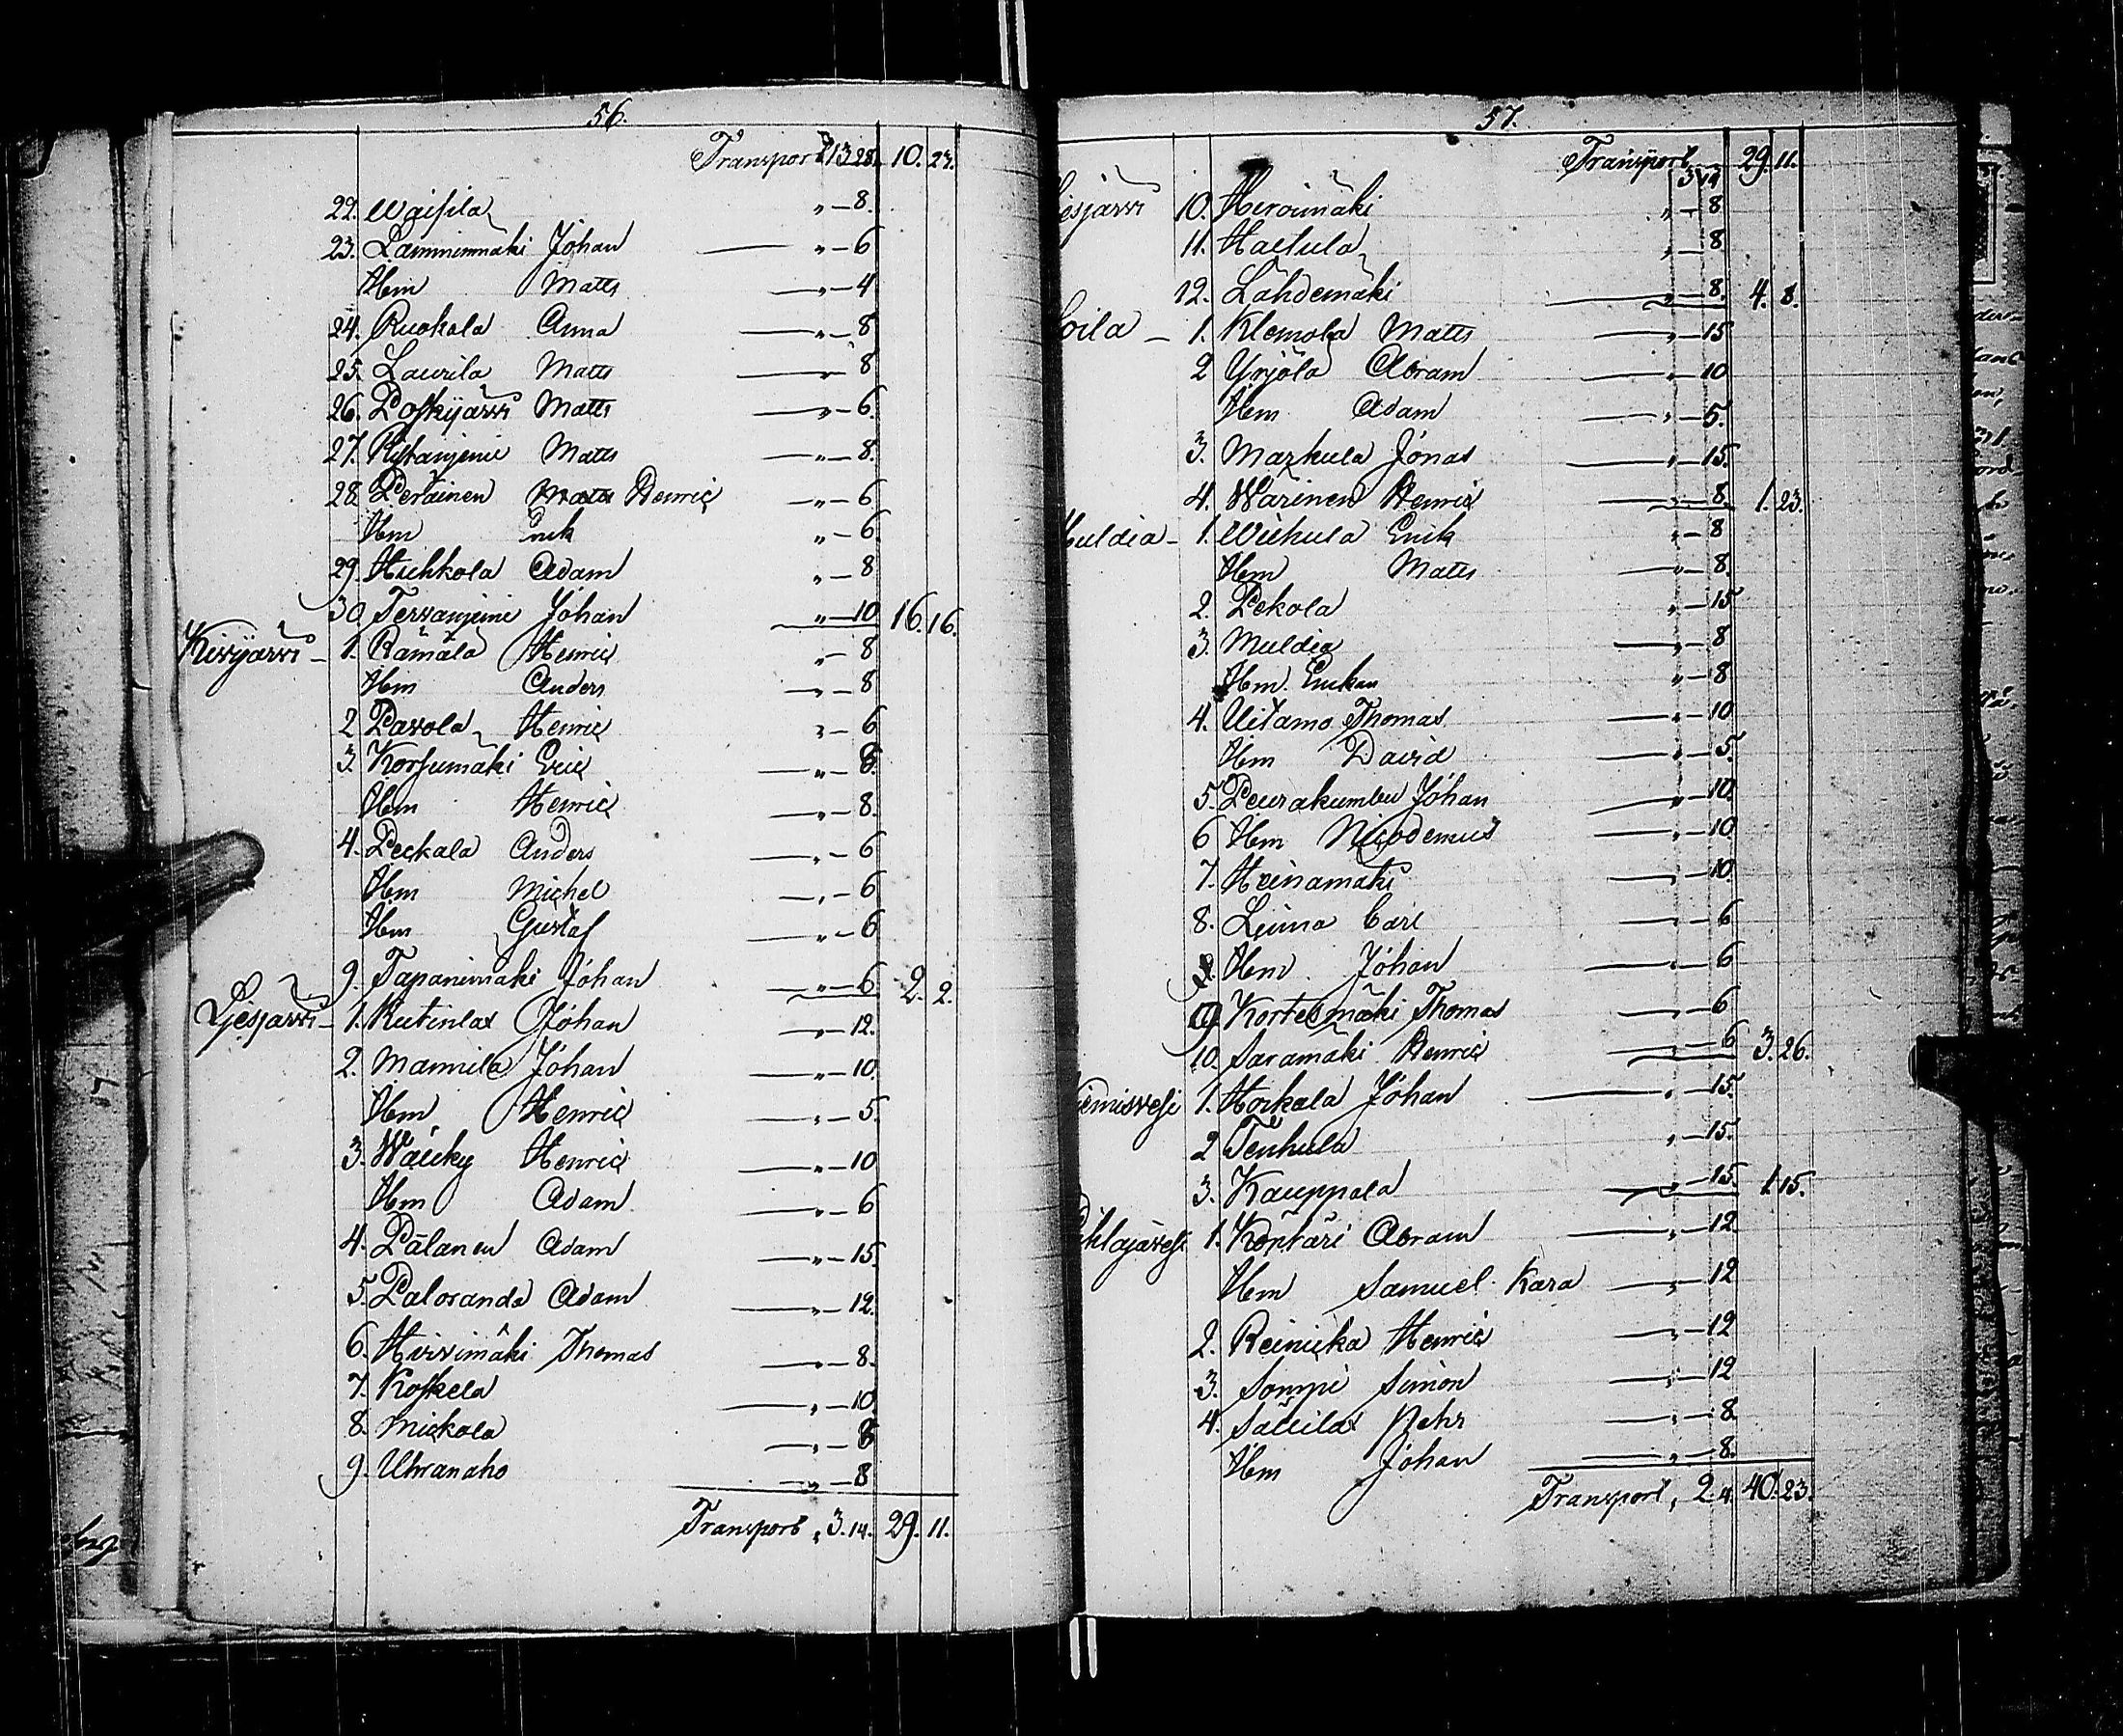 56.
Transport 13 28. 10. 23.
22. Waisila " — 8.
23. Lamminmäki Johan — " — 6
Hm Matts — " — 4
24. Ruokala Anna — " — 8
25. Laurila Matts — " 8
26. Poskijärvi Matts — " — 6.
27. Matts — " — 8.
28. Peräinen Henric — " — 6
Hm Erik " — 6
29. Huhkola Adam " — 8
30 Tervaniemi Johan " — 10 16. 16.
Kivijärvi — 1. Rämälä Henric " — 8
Hm Anders — " — 8
2 Pavola Henric " — 6
3. Korsumäki Eric — " — 8.
Hm Henric — " — 8.
4. Peckala Anders — " — 6
Hm Michel — " — 6
Hm Gustaf — " — 6
9. Tapanimäki Johan — " — 6 2. 2.
Liesjärvi — 1. Rutinlax Johan — " — 12.
2. Mannila Johan — " — 10.
Hm Henric — " — 5.
3. Henric — " — 10
Hm Adam — " — 6
4. Pälanen Adam — " — 15.
5. Paloranda Adam — " — 12.
6. Hirvimäki Thomas — " — 8.
7. Koskela — " — 10.
8. Mickola — " — 8
9. Uhranaho — " — 8
Transport " 3. 14. 29. 11.
57.
Transport 3 14 29. 11.
iesjärvi 10. Heroimäki " — 8
11. Haetula " — 8
12. Lahdemäki — " — 8. 4. 8.
oila — 1. Klemola Matts — " — 15
2 Yrjölä Abram — " — 10
Hm Adam — " — 5.
3. Markula Jonas — " — 15.
4. Wärinen Henric — " — 8. 1. 23.
uldia — 1. Wiehula Erik " — 8
Hm Matts — " — 8.
2. Pekola " — 15
3. Muldia — " — 8
Hm. Erickan " — 8
4. Uitamo Thomas — " — 10
Hm David — " — 5.
5. Peurakumbu Johan — " — 10.
6 Hm Nicodemus — " — 10
7. Heinamäki — " — 10.
8. Leima Carl — " — 6
Hm Johan — " — 6
9 Kortesmäki Thomas — " — 6
10. Saramäki Henric — " — 6 3. 26.
iemisvesi 1. Hockala Johan — " — 15.
2 Tenhula " — 15.
3. Kauppala — " — 15. 1. 15.
ihlajavesi 1. Kontäri Abram — " — 12
Hm Samuel Kara — " — 12
2. Reinicka Henric — " — 12
3. Sompi Simon — " — 12
4. Sallila Pehr — " — 8
Hm Johan — " — 8.
Transport " 2. 4. 40. 23.